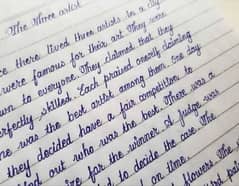 The three artist
ce there lived three artists in a city
were famous for their art. They were
wn to everyone. They claimed that they
erfectly skilled. Each praised overly claiming
ne was the best artist among them. One day
they decided have a fair competition to
find out who was the best. There was a
ize for the winner. A judge was
ed to decide the case. The
on time.
flowers. The